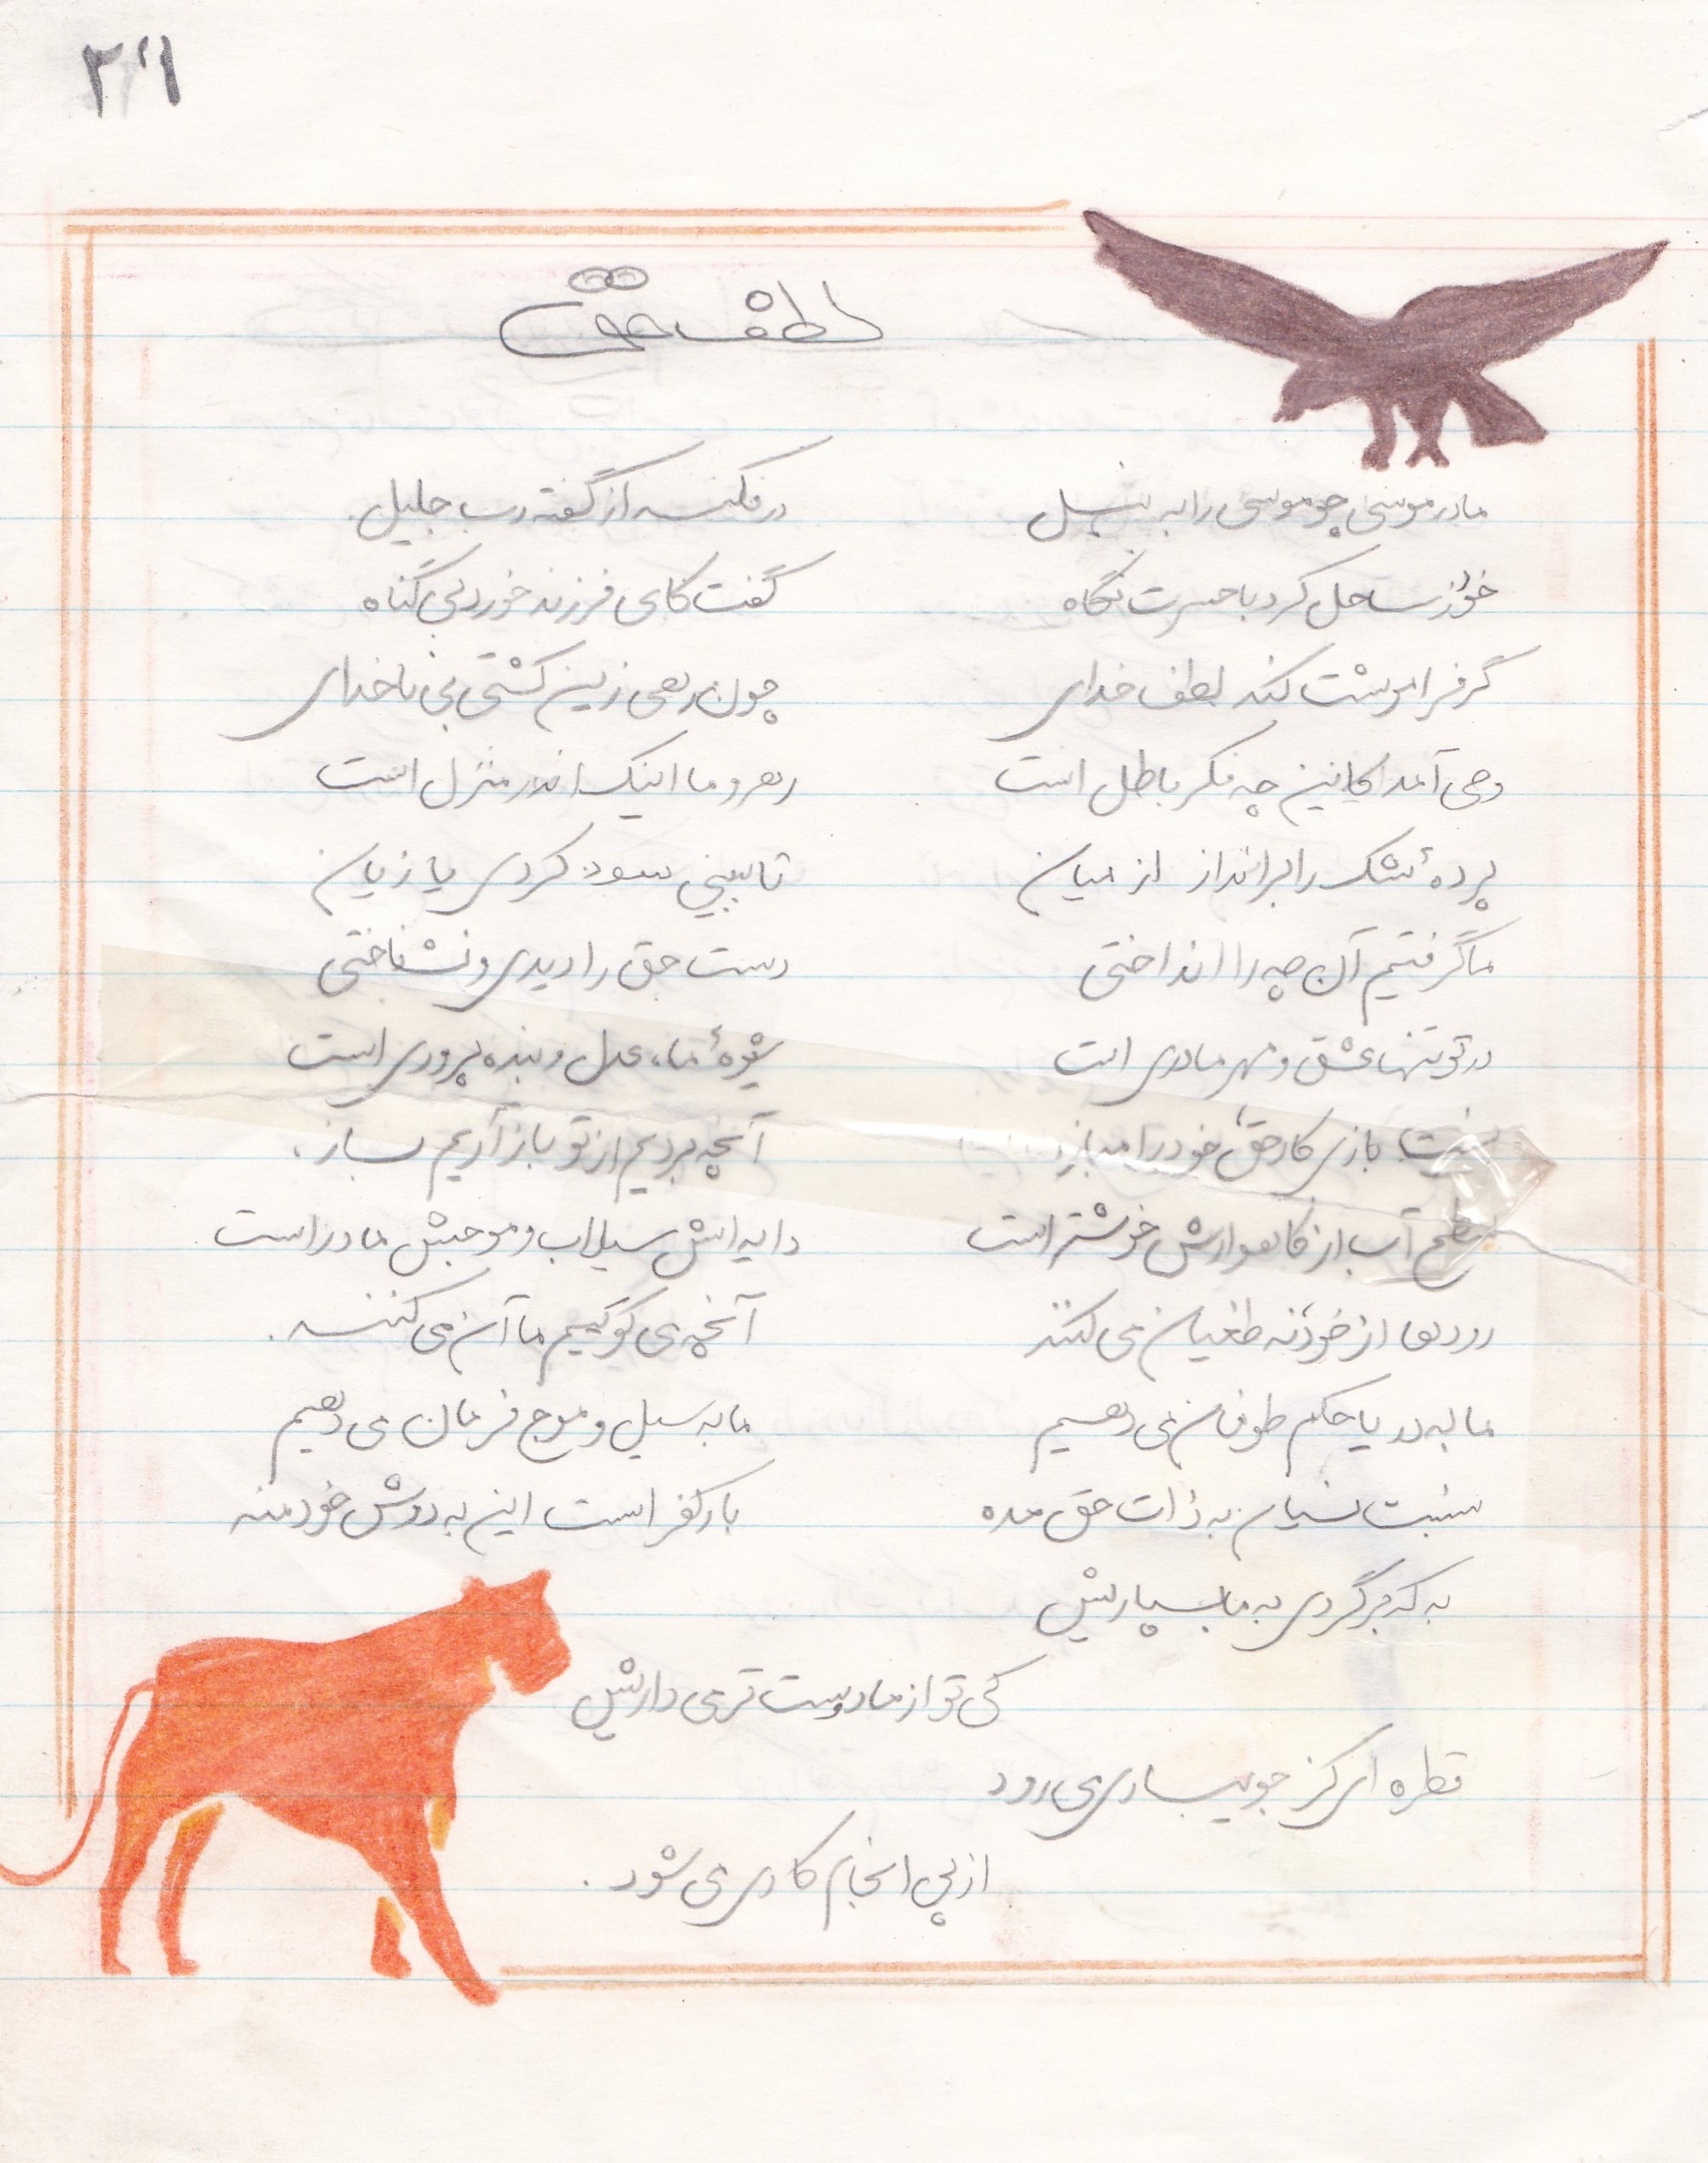 ۳۶۱
لطف حق
مادر موسی چو موسی را به نیل	در فکند از گفته رب جلیل.
خود ز ساحل کرد با حسرت نگاه	گفت کای فرزند خورد بی گناه
گر فراموشت کند لطف خدای	چون رهی زین کشتی بی ناخدای
وحی آمد کاین چه فکر باطل است	رهرو ما اینک اندر منزل است
پردهٔ شک را برانداز از میان	تا ببینی سود کردی یا زیان
ما گرفتیم آن چه را انداختی	دست حق را دیدی و نشناختی
در تو تنها عشق و مهر مادری است	شیوهٔ ما، عدل و بنده پروری است
نیست بازی کار حق، خود را مباز	آنچه بردیم از تو باز آریم باز.
سطح آب از گاهوارش خوشتر است	دایه اش سیلاب و موجش مادر است
رودها از خود نه طغیان می کنند	آنچه می گوئیم ما آن می کنند.
ما به دریا حکم طوفان می دهیم	ما به سیل و موج فرمان می دهیم
نسبت نسیان به ذات حق مده	بار کفر است این به دوش خود منه
به که برگردی به ما بسپاریش
کی تو از ما دوست تر می داریش
قطره ای کز جویباری می رود
از پی انجام کاری می شود.